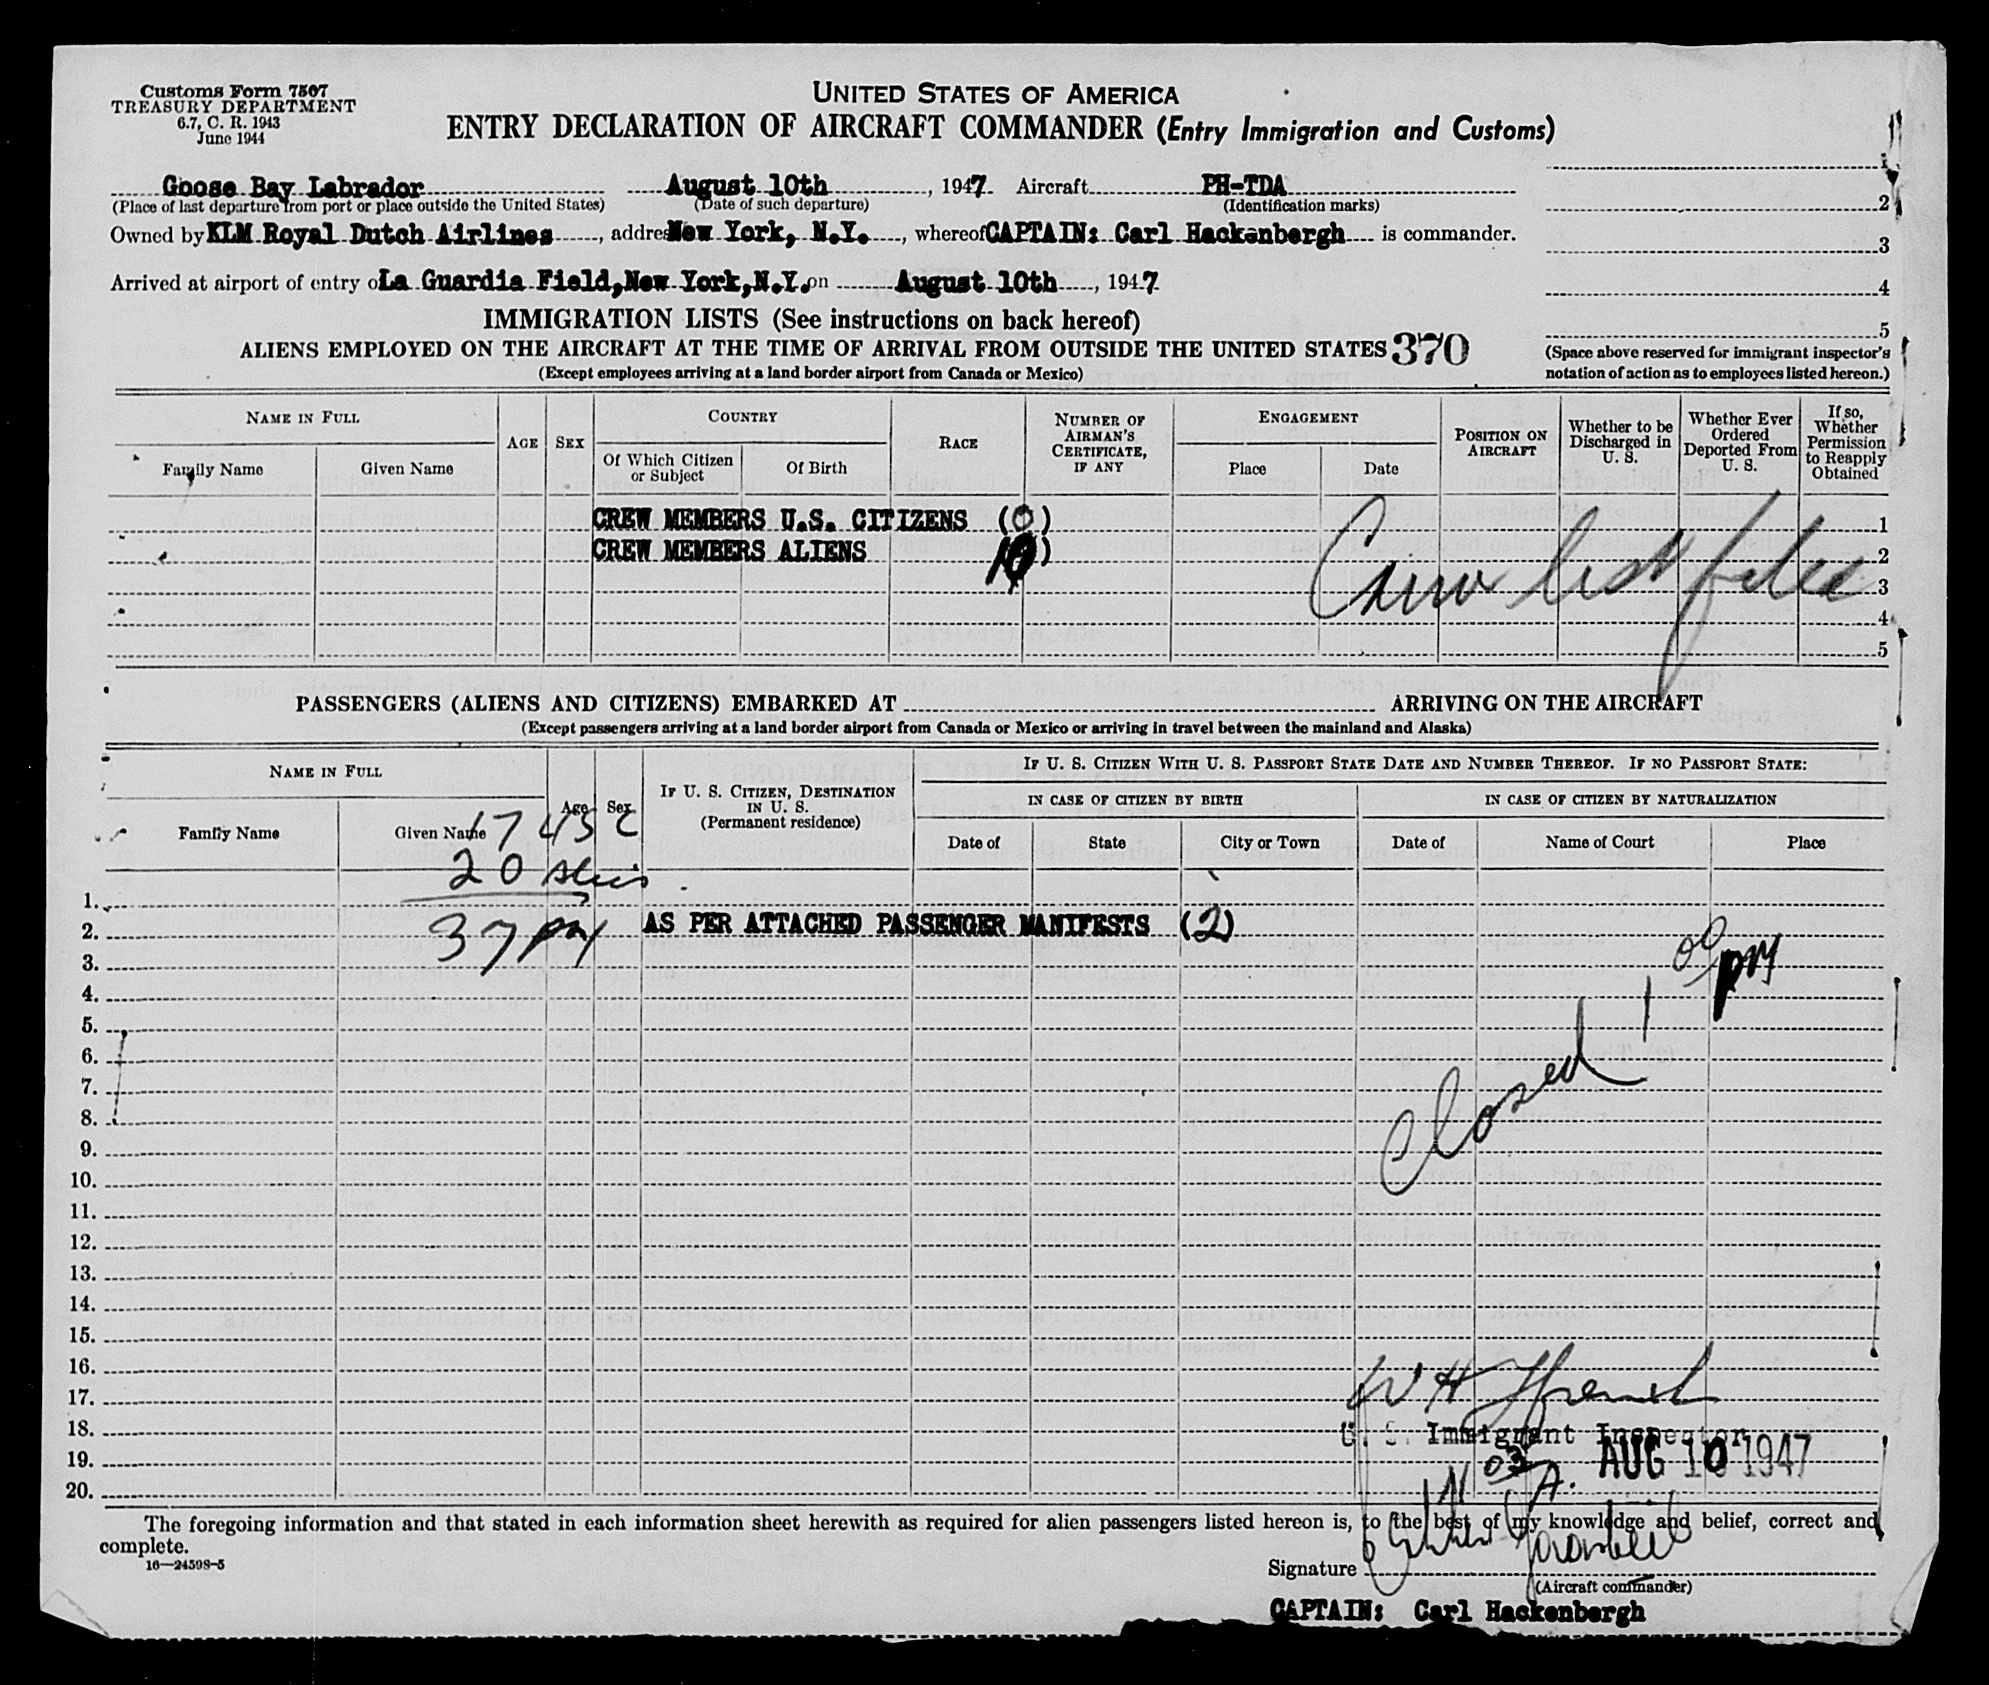 Customs Form 7507
TREASURY DEPARTMENT
6.7, C. R. 1943
June 1944
UNITED STATES OF AMERICA
ENTRY DECLARATION OF AIRCRAFT COMMANDER (Entry Immigration and Customs)
Goose Bay Labrador August 10th, 1947 Aircraft PH-TDA
(Place of last departure from port or place outside the United States) (Date of such departure) (Identification marks)
Owned by KLM Royal Dutch Airlines, addres New York, N.Y., whereof CAPTAIN: Carl Hackenbergh is commander.
Arrived at airport of entry o La Guardia Field, New York, N.Y. on August 10th, 1947
1
2
3
4
5
(Space above reserved for immigrant inspector's
notation of action as to employees listed hereon.)
IMMIGRATION LISTS (See instructions on back hereof)
ALIENS EMPLOYED ON THE AIRCRAFT AT THE TIME OF ARRIVAL FROM OUTSIDE THE UNITED STATES 370
(Except employees arriving at a land border airport from Canada or Mexico)
NAME IN FULL
Family Name Given Name
AGE SEX
COUNTRY
Of Which Citizen or Subject Of Birth
RACE
NUMBER OF AIRMAN'S CERTIFICATE, IF ANY
ENGAGEMENT
Place Date
POSITION ON AIRCRAFT
Whether to be Discharged in U. S.
Whether Ever Ordered Deported From U. S.
If so, Whether Permission to Reapply Obtained
CREW MEMBERS U.S. CITIZENS (0) 1
CREW MEMBERS ALIENS 10) 2
Crew list filed
3
4
5
PASSENGERS (ALIENS AND CITIZENS) EMBARKED AT ARRIVING ON THE AIRCRAFT
(Except passengers arriving at a land border airport from Canada or Mexico or arriving in travel between the mainland and Alaska)
NAME IN FULL
Family Name Given Name
Age Sex
IF U. S. CITIZEN, DESTINATION IN U. S.
(Permanent residence)
IF U. S. CITIZEN WITH U. S. PASSPORT STATE DATE AND NUMBER THEREOF. IF NO PASSPORT STATE:
IN CASE OF CITIZEN BY BIRTH IN CASE OF CITIZEN BY NATURALIZATION
Date of State City or Town Date of Name of Court Place
17 USC
20
37
1.
2. AS PER ATTACHED PASSENGER MANIFESTS (2)
3.
4.
5.
6.
7.
8.
9.
10.
11.
12.
13.
14.
15.
16.
17.
18.
19.
20.
Closed 1 00 pm
U. S. Immigrant Inspector
AUG 10 1947
The foregoing information and that stated in each information sheet herewith as required for alien passengers listed hereon is, to the best of my knowledge and belief, correct and
complete.
16—24598-5
Signature
(Aircraft commander)
CAPTAIN: Carl Hackenbergh